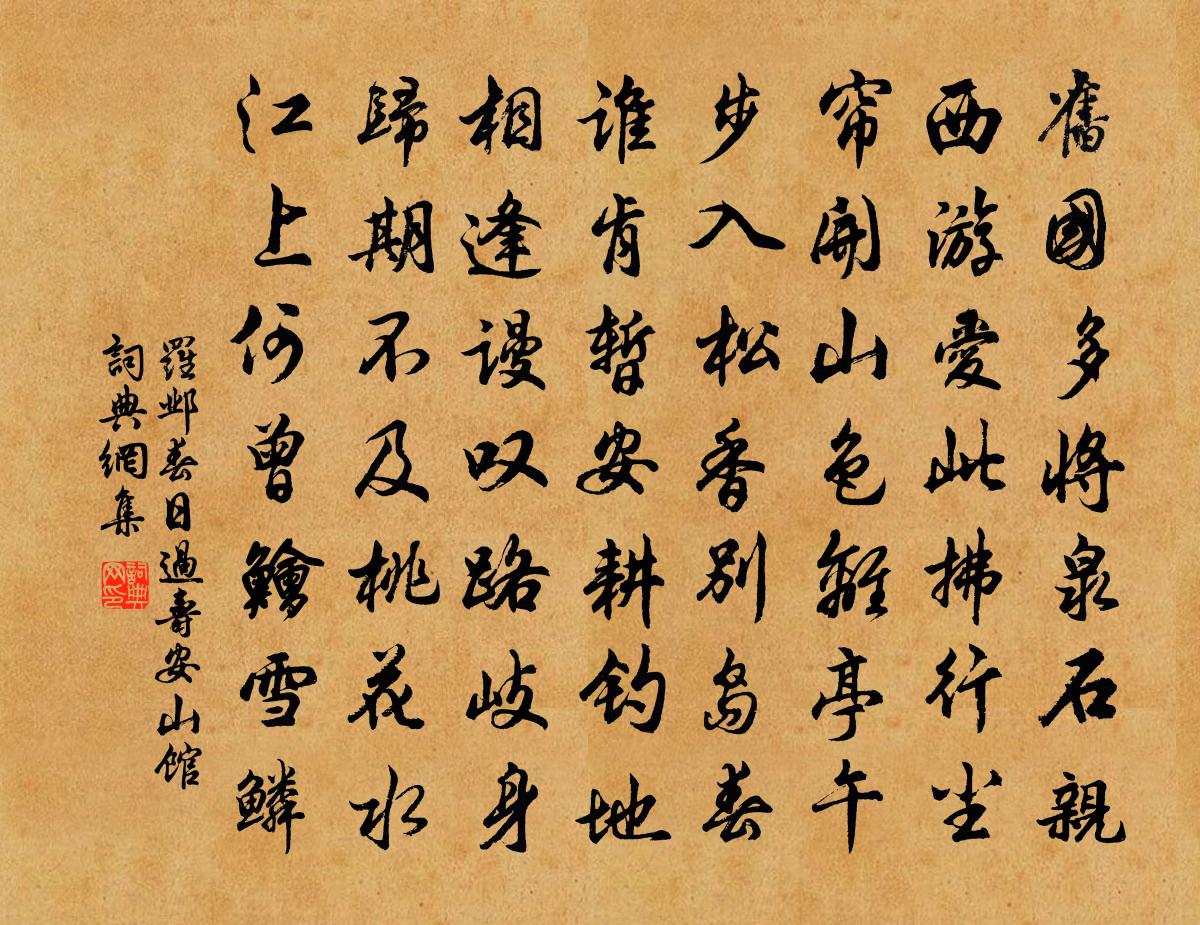 舊國多將泉石親
西游愛此拂行尘
帘開山色離亭午
步入松香別島春
谁肯暫安耕釣地
相逢謾叹路歧身
歸期不及桃花水
江上何曾鱠雪鱗
羅邺春日過壽安山館
詞典網集
詞典网印